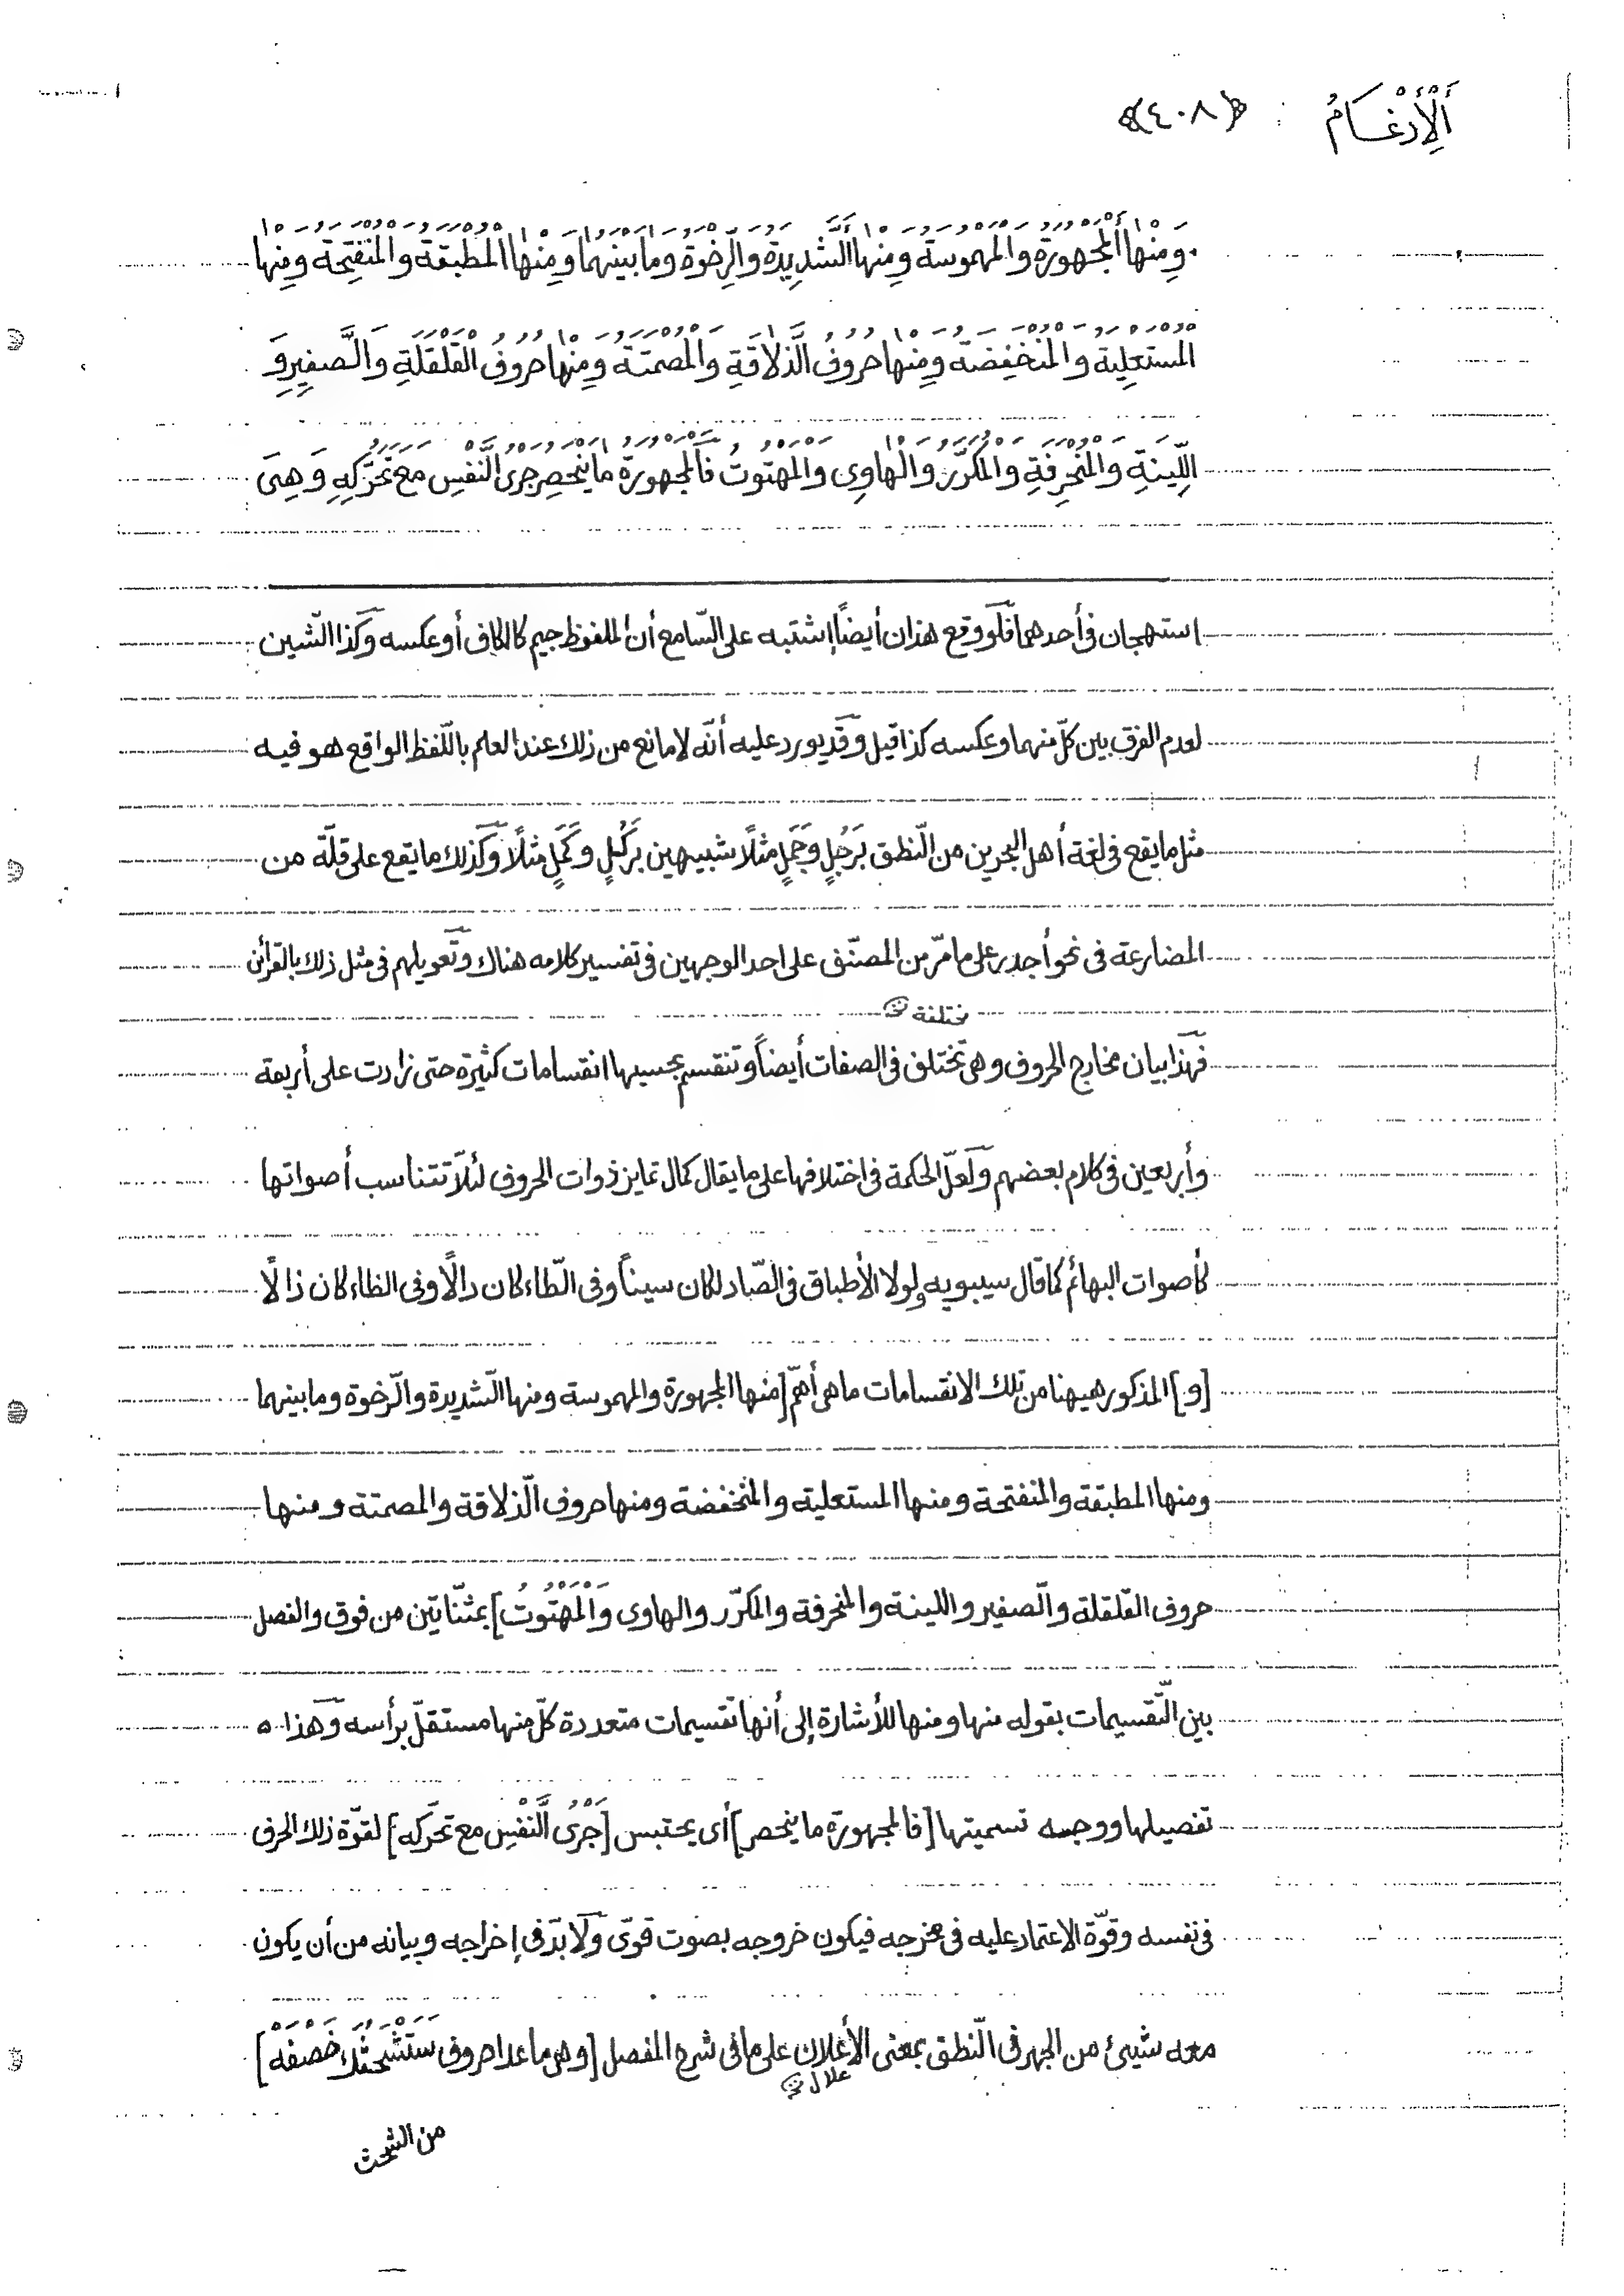 اَلْإِدْغَامُ : ﴿٤٠٨﴾
وَمِنْهَا اَلْمَجْهُورَةُ وَالْمَهْمُوسَةُ وَمِنْهَا اَلشَّدِيدَةُ وَالرِّخْوَةُ وَمَا بَيْنَهُمَا وَمِنْهَا الْمُطْبَقَةُ وَالْمُنْفَتِحَةُ وَمِنْهَا
الْمُسْتَعْلِيَةُ وَالْمُنْخَفِضَةُ وَمِنْهَا حُرُوفُ الذَّلَاقَةِ وَالْمُصْمَتَةُ وَمِنْهَا حُرُوفُ الْقَلْقَلَةِ وَالصَّفِيرِ وَ
اللَّيِّنَةِ وَالْمُنْحَرِفَةِ وَالْمُكَرَّرُ وَالْهَاوِى وَالْمَهْتُوتُ فَالْمَجْهُورَةُ مَا يَنْحَصِرُ جَرْىُ النَّفَسِ مَعَ تَحَرُّكِهِ وَهِىَ
استهجان فى أحدهما فلو وقع هذان أيضاً إشتبه على السّامع أن الملفوظ جيم كالكاف أو عكسه وكذا الشّين
لعدم الفرق بين كلّ منهما وعكسه كذا قيل وقد يورد عليه أنّه لا مانع من ذلك عند العلم باللّفظ الواقع هو فيه
مثل ما يقع فى لغة أهل البحرين من النّطق بَرَجُلٍ وجَمَلٍ مثلًا شبيهين برَكُلٍ وكَمَلٍ مثلًا وكذلك ما يقع على قلّة من
المضارعة فى نحو أجدر على ما مرّ من المصنّف على احد الوجهين فى تفسير كلامه هناك وتعويلهم فى مثل ذلك بالقرأئن
مختلفة خ
فهذا بيان مخارج الحروف وهى تختلف فى الصفات أيضاً وتنقسم بحسبها انقسامات كثيرة حتى زادت على أربعة
وأربعين فى كلام بعضهم ولعلّ الحكمة فى اختلافها على ما يقال كمال تمايز ذوات الحروف لئلّا تتناسب أصواتها
كأصوات البهائم كما قال سيبويه ولولا الأطباق فى الصّاد لكان سيناً وفى الطّاء كان دالًا وفى الظاء كان ذالًا
[و] المذكور هيهنا من تلك الانقسامات ما هى أهمّ [منها المجهورة والمهموسة ومنها الشّديدة والرّخوة وما بينهما
ومنها المطبقة والمنفتحة ومنها المستعلية والمنخفضة ومنها حروف الذّلاقة والمصمتة ومنها
حروف القلقلة والصّفير واللينة والمنحرفة والمكرّر والهاوى وَالْمَهْتُوتُ] بمثنّاتين من فوق والفصل
بين التّقسيمات بقوله منها ومنها للأشارة إلى أنها تقسيمات متعددة كلّ منها مستقلّ برأسه وهذا ه
تفصيلها ووجه تسميتها [فالمجهورة ما ينحصر] أى يحتبس [جَرْىُ النَّفَسِ مع تحرّكه] لقوّة ذلك الحرف
فى نفسه وقوّة الاعتماد عليه فى مخرجه فيكون خروجه بصوت قوّى ولا بدّ فى إخراجه وبيانه من أن يكون
معه شيئ من الجهر فى النّطق بمعنى الأعلان على ما فى شرح المفصل [وهى ما عدا حروف سَتَشْحَثُكَ خَصَفَهْ]
علال خ
من الشحث